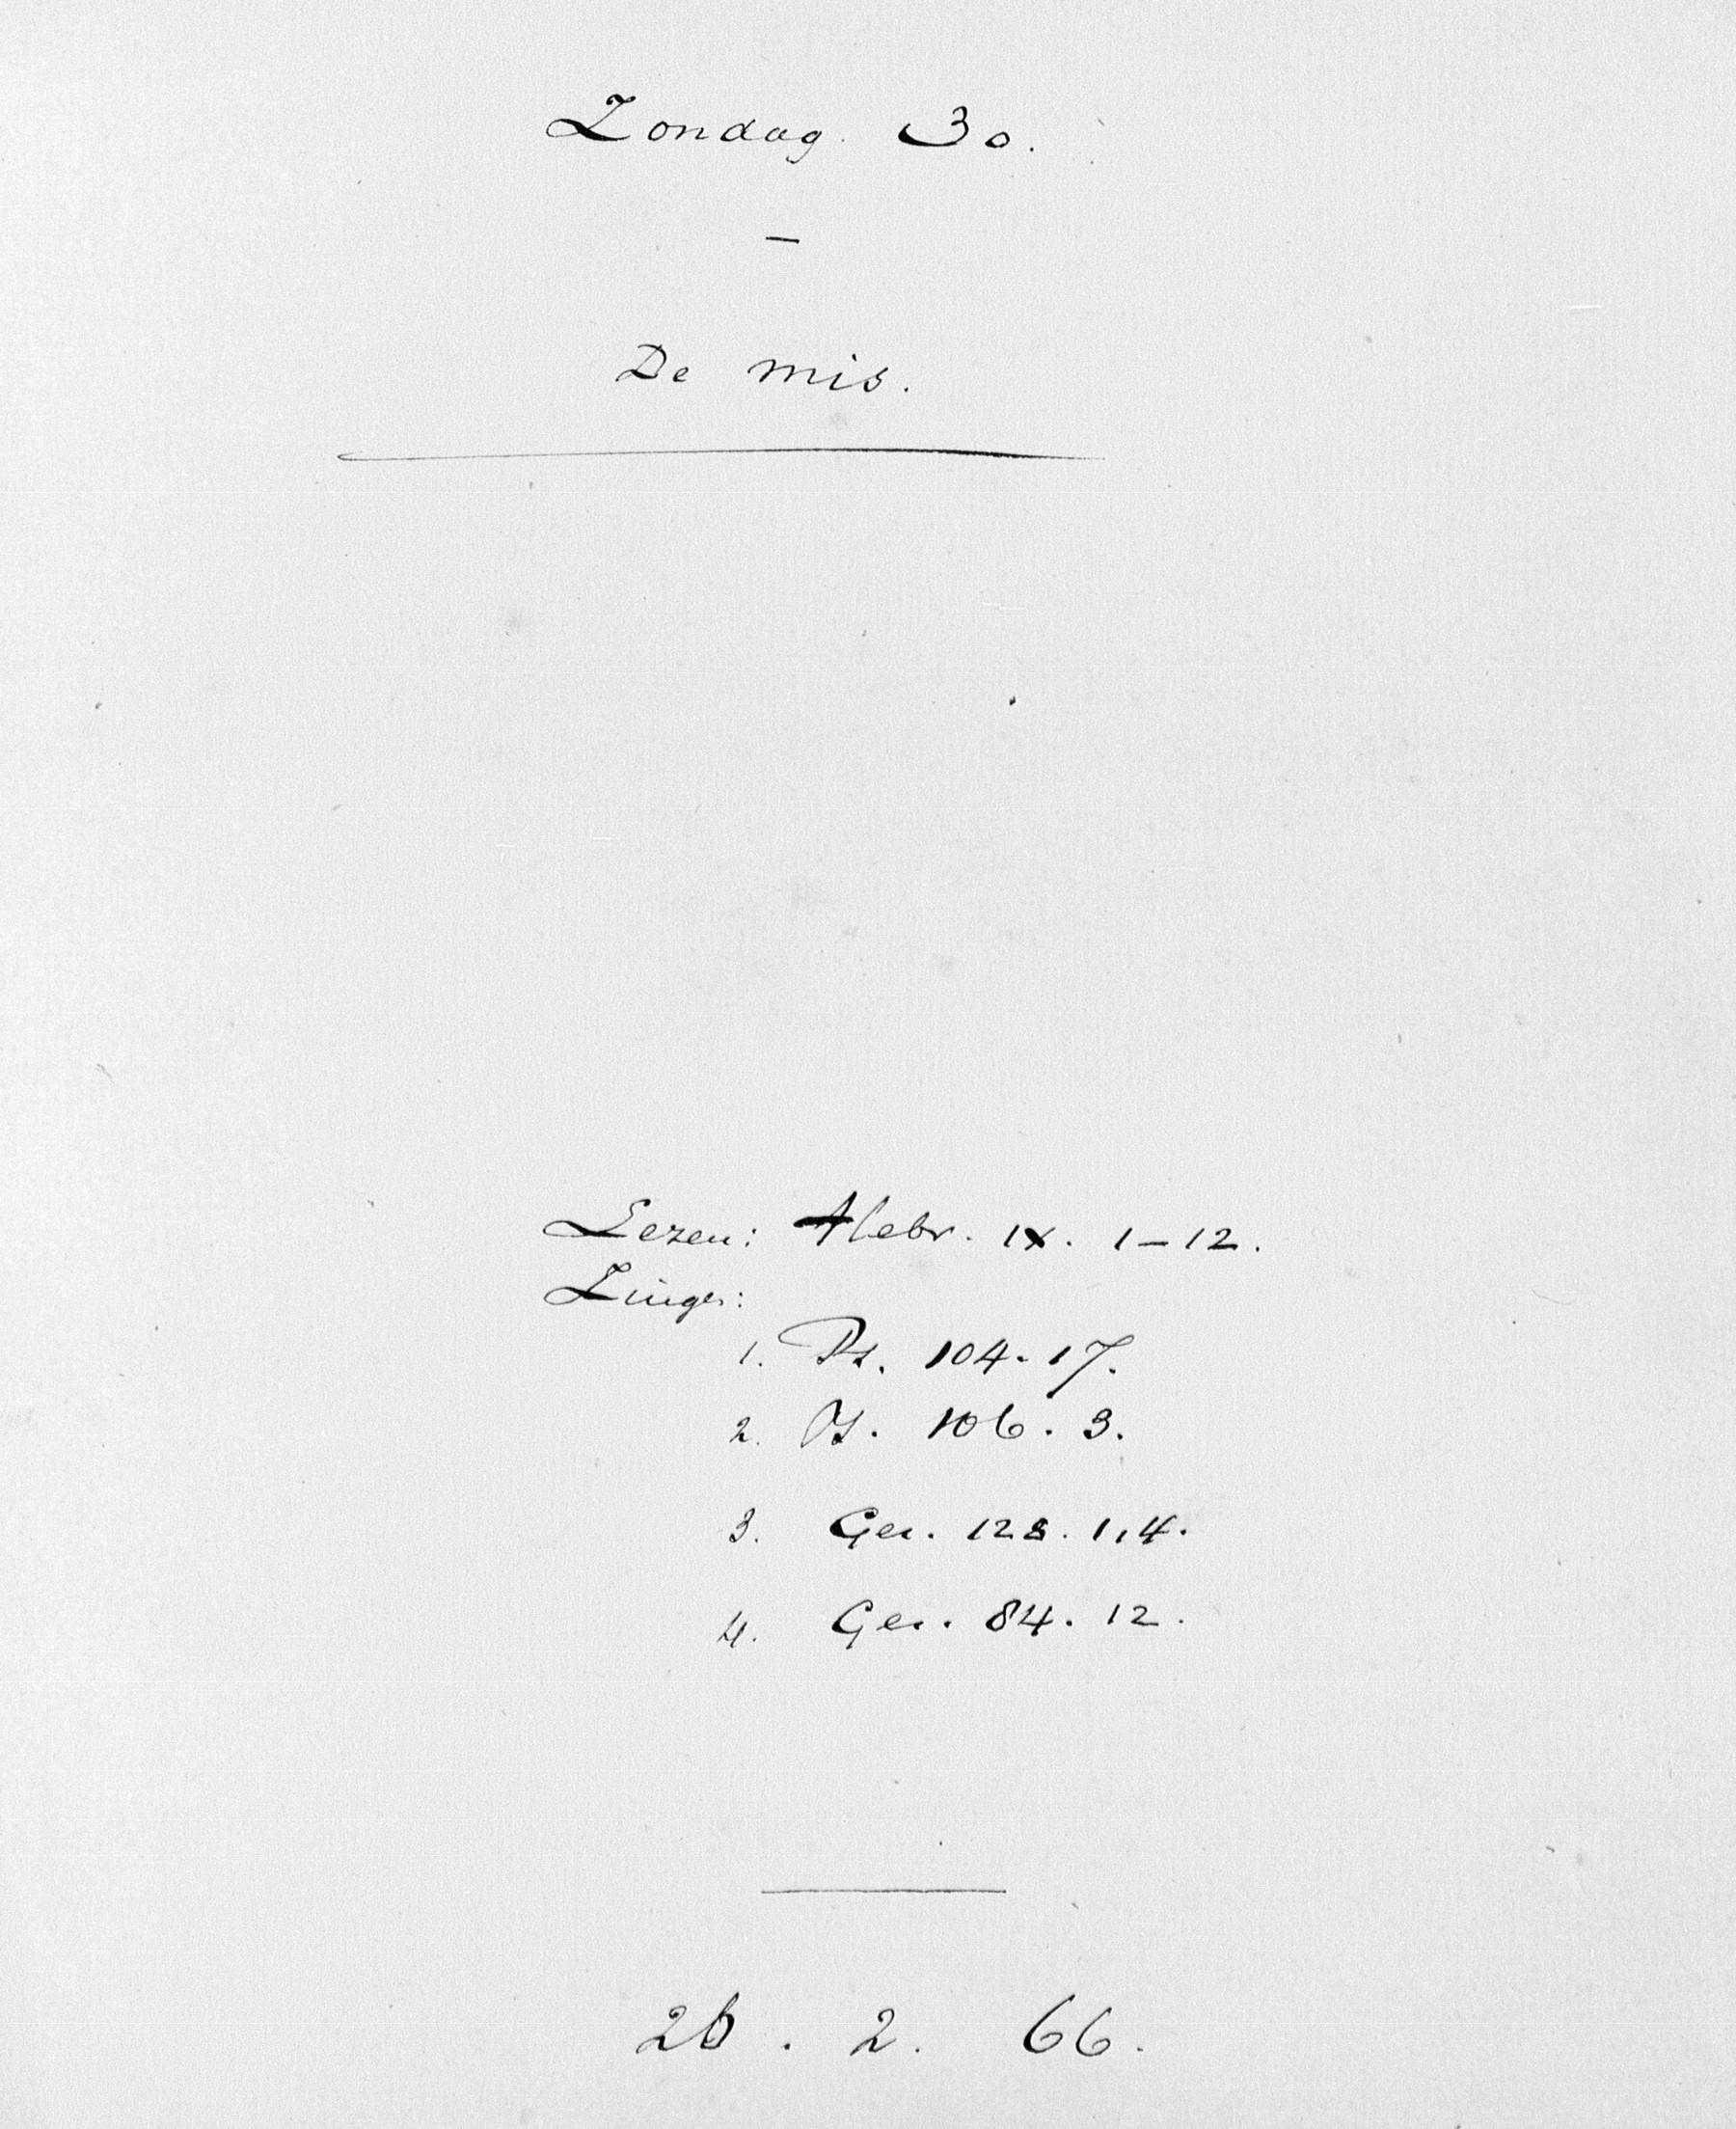 Zondag. 30.
—
De mis.
Lezen: Hebr. IX. 1-12.
Zinge:
1. Ps. 104. 17.
2. Ps. 106. 3.
3. Gez. 128. 1, 4.
4. Gez. 84. 12.
26. 2. 66.